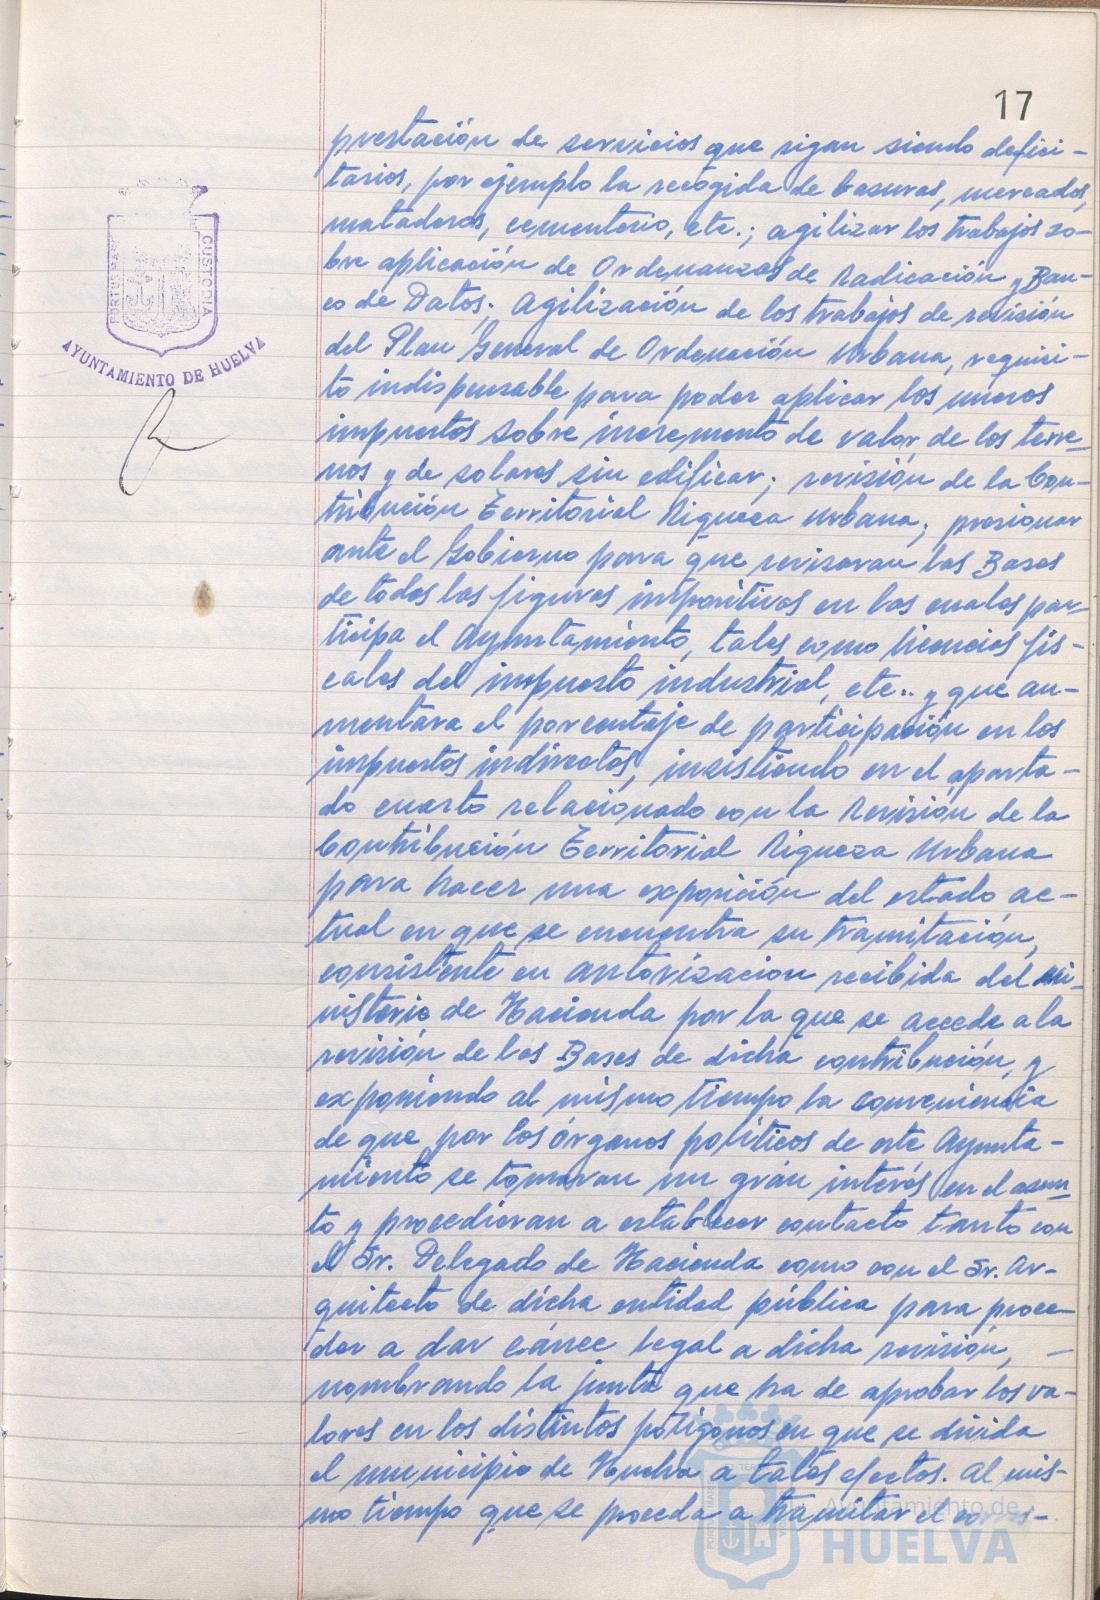 17
prestación de servicios que sigan siendo defici-
tarios, por ejemplo la recogida de basuras, mercados,
mataderos, cementerio, etc.; agilizar los trabajos so-
bre aplicación de Ordenanzas de Radicación y Ban-
co de Datos; Agilización de los trabajos de revisión
del Plan General de Ordenación Urbana, requisi-
to indispensable para poder aplicar los nuevos
impuestos sobre incremento de valor de los terre-
nos y de solares sin edificar; revisión de la Con-
tribución Territorial Riqueza Urbana; presionar
ante el Gobierno para que revisaran las Bases
de todas las figuras impositivas en las cuales par-
ticipa el Ayuntamiento, tales como licencias fis-
cales del impuesto industrial, etc.. y que au-
mentara el porcentaje de participación en los
impuestos indirectos, insistiendo en el aparta-
do cuarto relacionado con la Revisión de la
Contribución Territorial Riqueza Urbana
para hacer una exposición del estado ac-
tual en que se encuentra su tramitación,
consistente en autorización recibida del Mi-
nisterio de Hacienda por la que se accede a la
revisión de las Bases de dicha contribución, y
exponiendo al mismo tiempo la conveniencia
de que por los órganos políticos de este Ayunta-
miento se tomaran un grán interés en el asun-
to y procedieran a establecer contacto tanto con
el Sr. Delegado de Hacienda como con el Sr. Ar-
quitecto de dicha entidad pública para proce-
der a dar cáuce legal a dicha revisión, -
nombrando la junta que ha de aprobar los va-
lores en los distintos polígonos en que se divida
el municipio de Huelva a tales efectos. Al mis-
mo tiempo que se proceda a tramitar el corres-
PORTUS MARIS
CUSTODIA
AYUNTAMIENTO DE HUELVA
Ayuntamiento de
HUELVA